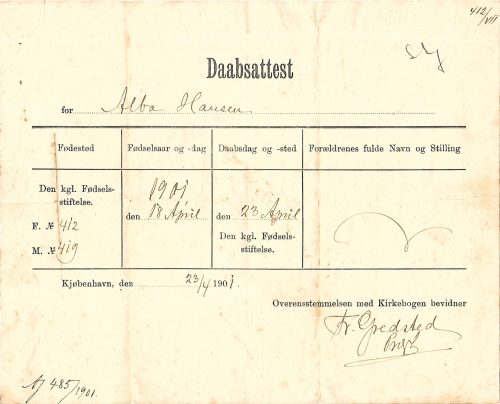 412/VII
Daabsattest
for Alba Hansen
Fødested Fødselsaar og -dag Daabsdag og -sted Forældrenes fulde Navn og Stilling
Den kgl. Fødsels-
stiftelse.
F. № 412
M. № 419
1901
den 18 April
den 23 April
Den kgl. Fødsels-
stiftelse.
Kjøbenhavn, den 23/4 1901.
Overensstemmelsen med Kirkebogen bevidner
Fr. Gredsted
AJ 485/1901.